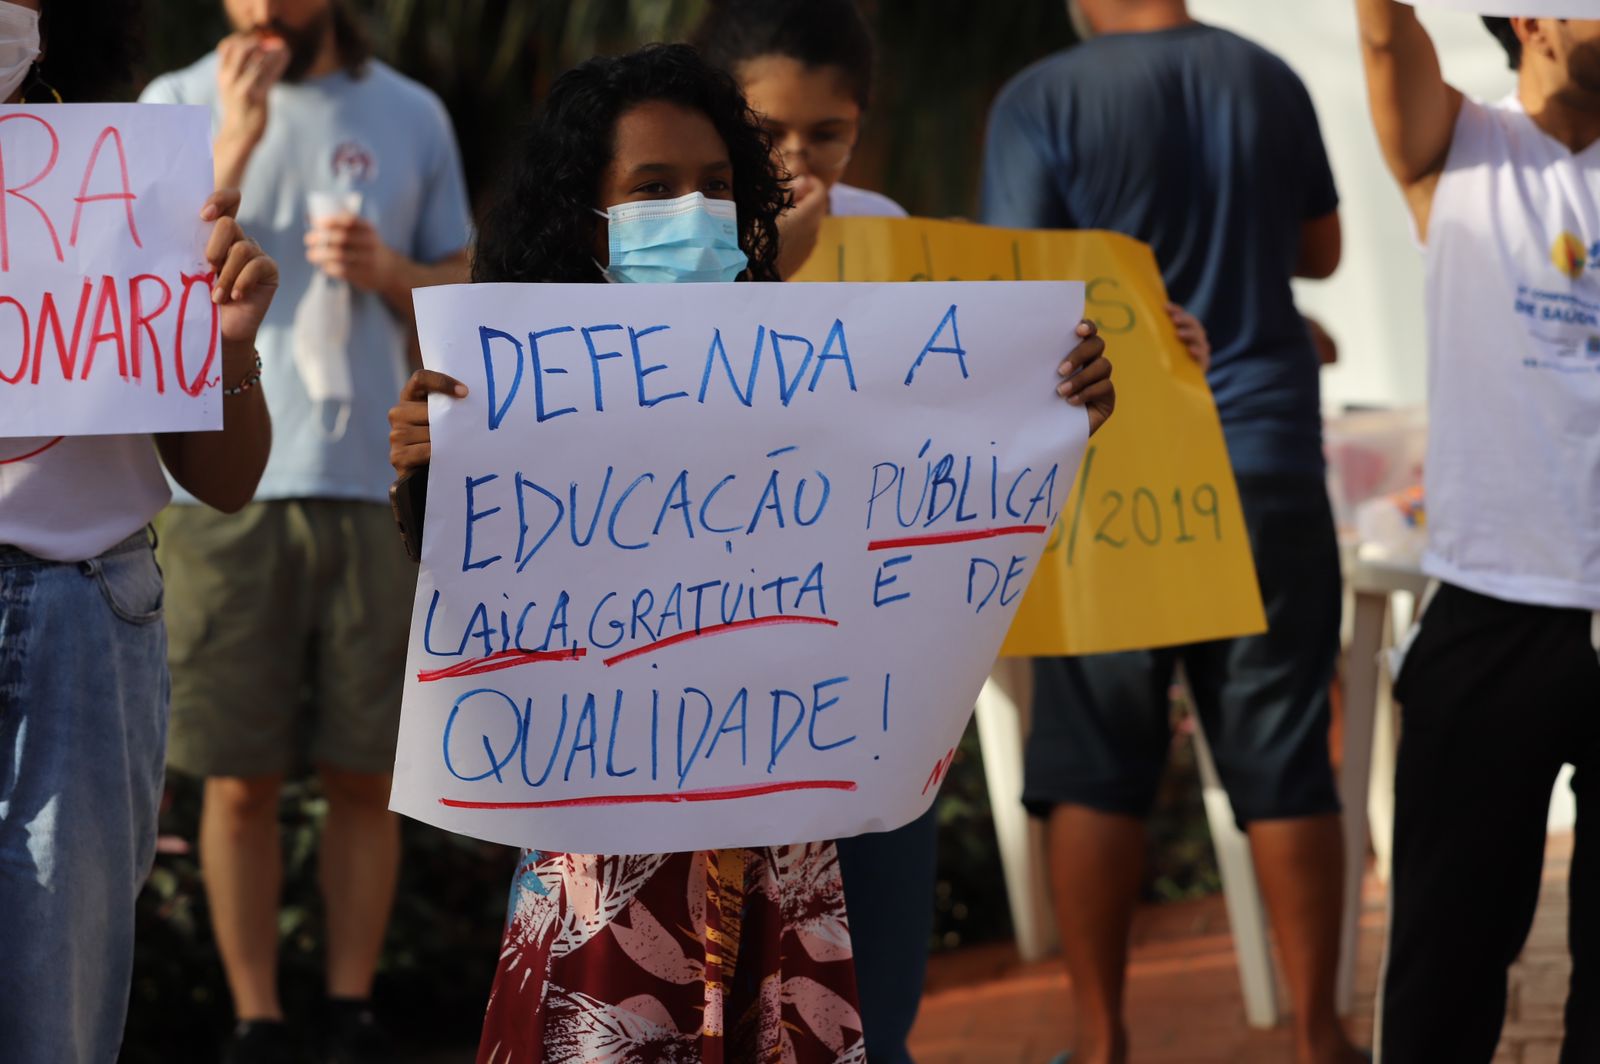 RA
ONARO
DEFENDA A
EDUCAÇÃO PÚBLICA,
LAICA, GRATUITA E DE
QUALIDADE!
/2019
DE SAÚDE